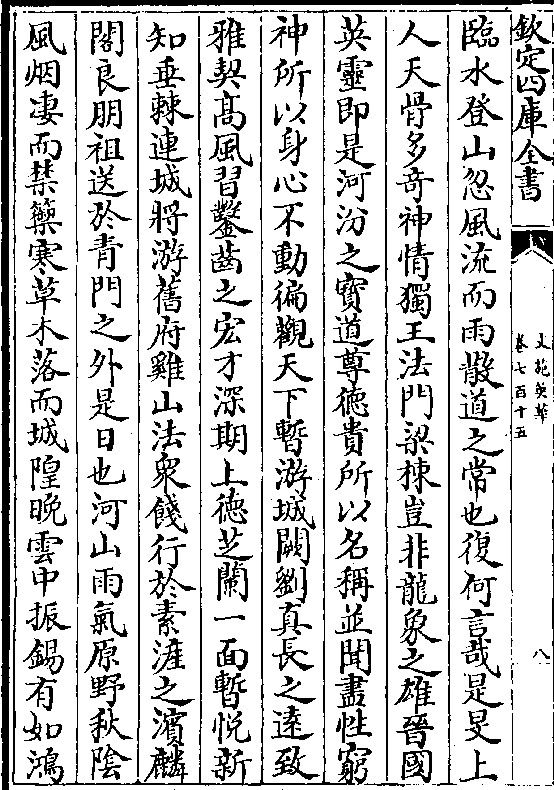 欽定四庫全書
文苑英華
卷七百十五
八
臨水登山忽風流而雨散道之常也復何言哉是旻上
人天骨多竒神情獨王法門梁棟豈非龍象之雄晉國
英靈即是河汾之寳道尊德貴所以名稱並聞盡性窮
神所以身心不動徧觀天下暫游城闕劉真長之逺致
雅契髙風習鑿齒之宏才深期上徳芝蘭一面暫悦新
知垂棘連城將游舊府雞山法衆餞行於素滻之濱麟
閣良朋祖送於青門之外是日也河山雨氣原野秋陰
風烟凄而禁籞寒草木落而城隍晚雲中振錫有如鴻